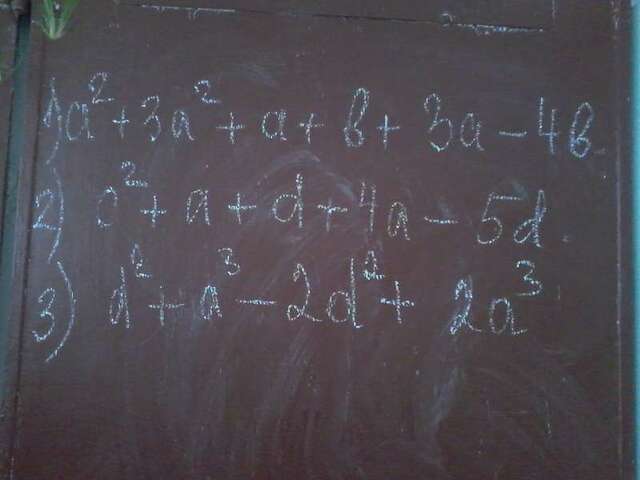 1) a² + 3a² + a + b + 3a - 4b.
2) c² + a + d + 4a - 5d.
3) d² + a³ - 2d² + 2a³.